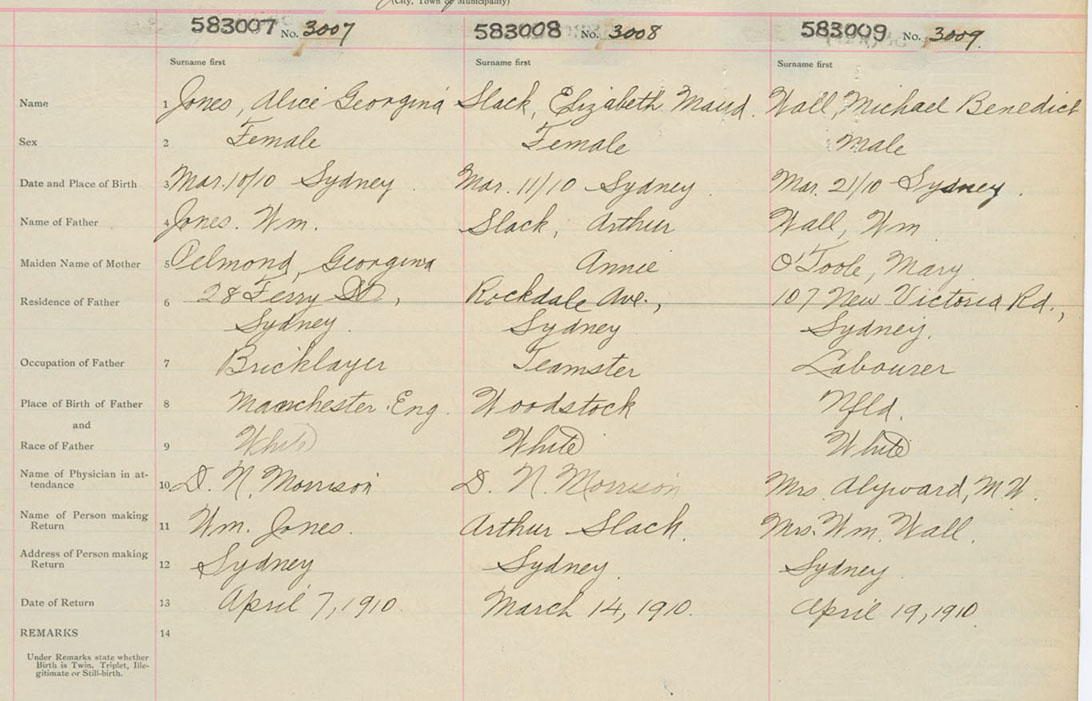 (City, Town or Municipality)
583007 No. 3007 583008 No. 3008 583009 No. 3009
Surname first Surname first Surname first
Name 1 Jones, Alice Georgina Slack, Elizabeth Maud. Wall, Michael Benedict
Sex 2 Female Female Male
Date and Place of Birth 3 Mar. 10/10 Sydney Mar. 11/10 Sydney Mar. 21/10 Sydney.
Name of Father 4 Jones. Wm. Slack, Arthur Wall, Wm
Maiden Name of Mother 5 Georgina Annie O'Toole, Mary
Residence of Father 6 28 Ferry St., Rockdale Ave., 107 New Victoria Rd.,
Sydney. Sydney Sydney.
Occupation of Father 7 Bricklayer Teamster Labourer
Place of Birth of Father 8 Manchester. Eng. Woodstock Nfld.
and
Race of Father 9 White White White
Name of Physician in at- 10 D. N. Morrison D. N. Morrison Mrs. Alyward, M.W.
tendance
Name of Person making 11 Wm. Jones. Arthur Slack. Mrs. Wm. Wall.
Return
Address of Person making 12 Sydney Sydney. Sydney.
Return
Date of Return 13 April 7, 1910. March 14, 1910. April 19, 1910.
REMARKS 14
Under Remarks state whether
Birth is Twin, Triplet, Ille-
gitimate or Still-birth.